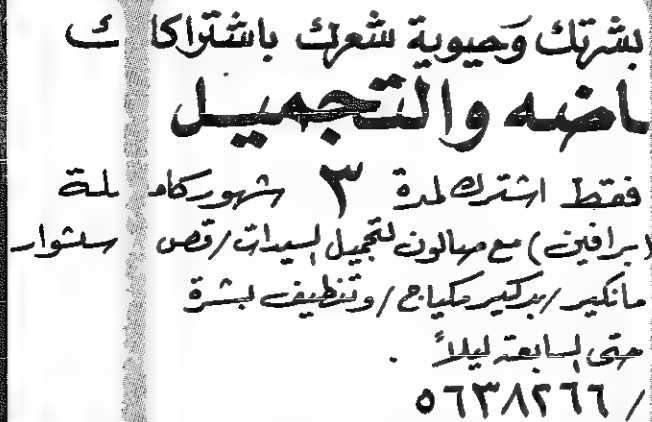 بشرتك وحيوية شعرك باشتراكك
ـاضه والتجميل
فقط اشترك لمدة ٣ شهور كاملة
(برافين) مع صالون لتجميل السيدات / قص سشوار
مانكير / بدكير مكياج / وتنظيف لبشرة
حتى السابعة ليلاً .
/ ٥٦٣٨٢٦٦